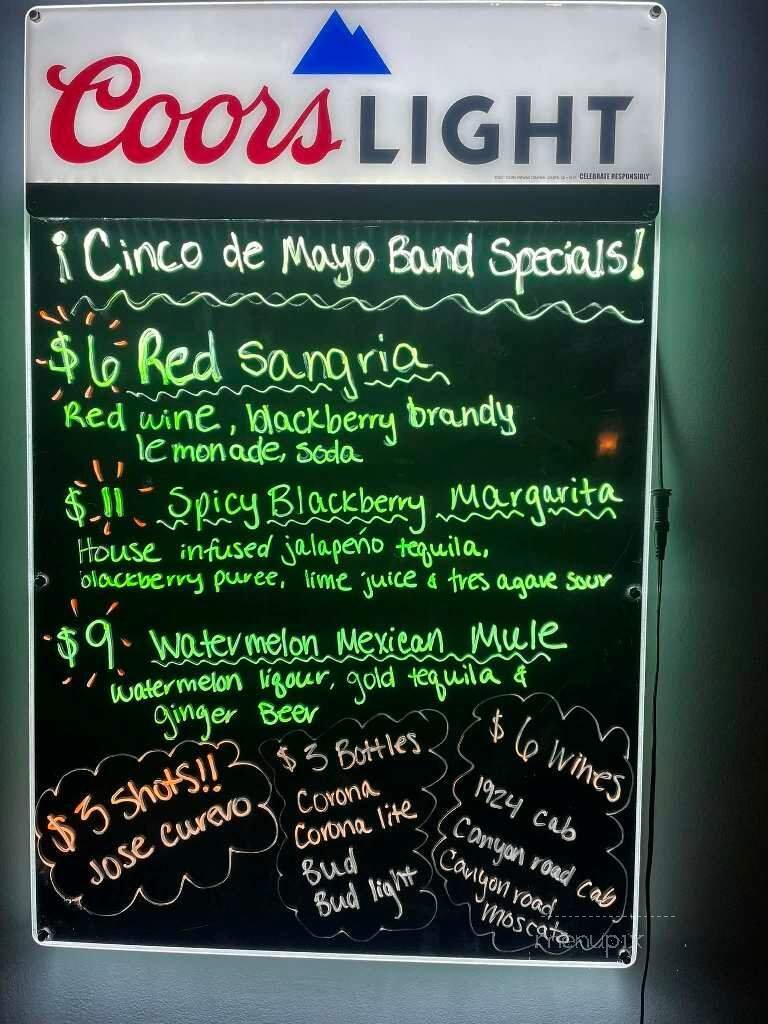 Coors LIGHT
CELEBRATE RESPONSIBLY
¡Cinco de Mayo Band Specials!
$6 Red Sangria
Red wine, blackberry brandy
lemonade, soda
$11 Spicy Blackberry Margarita
House infused jalapeño tequila,
blackberry puree, lime juice & tres agave sour
$9 Watermelon Mexican Mule
Watermelon liqour, gold tequila &
ginger Beer
$3 Shots!!
Jose Curevo
$3 Bottles
Corona
Corona lite
Bud
Bud light
$6 Wines
1924 cab
Canyon road cab
Canyon road
moscato
menupix